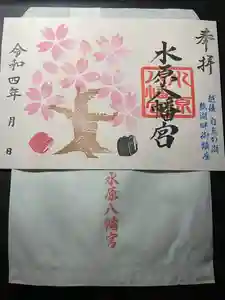 奉拝
水原八幡宮
水原八幡宮
越後 白鳥の湖
瓢湖畔御鎮座
令和四年 月 日
水原八幡宮